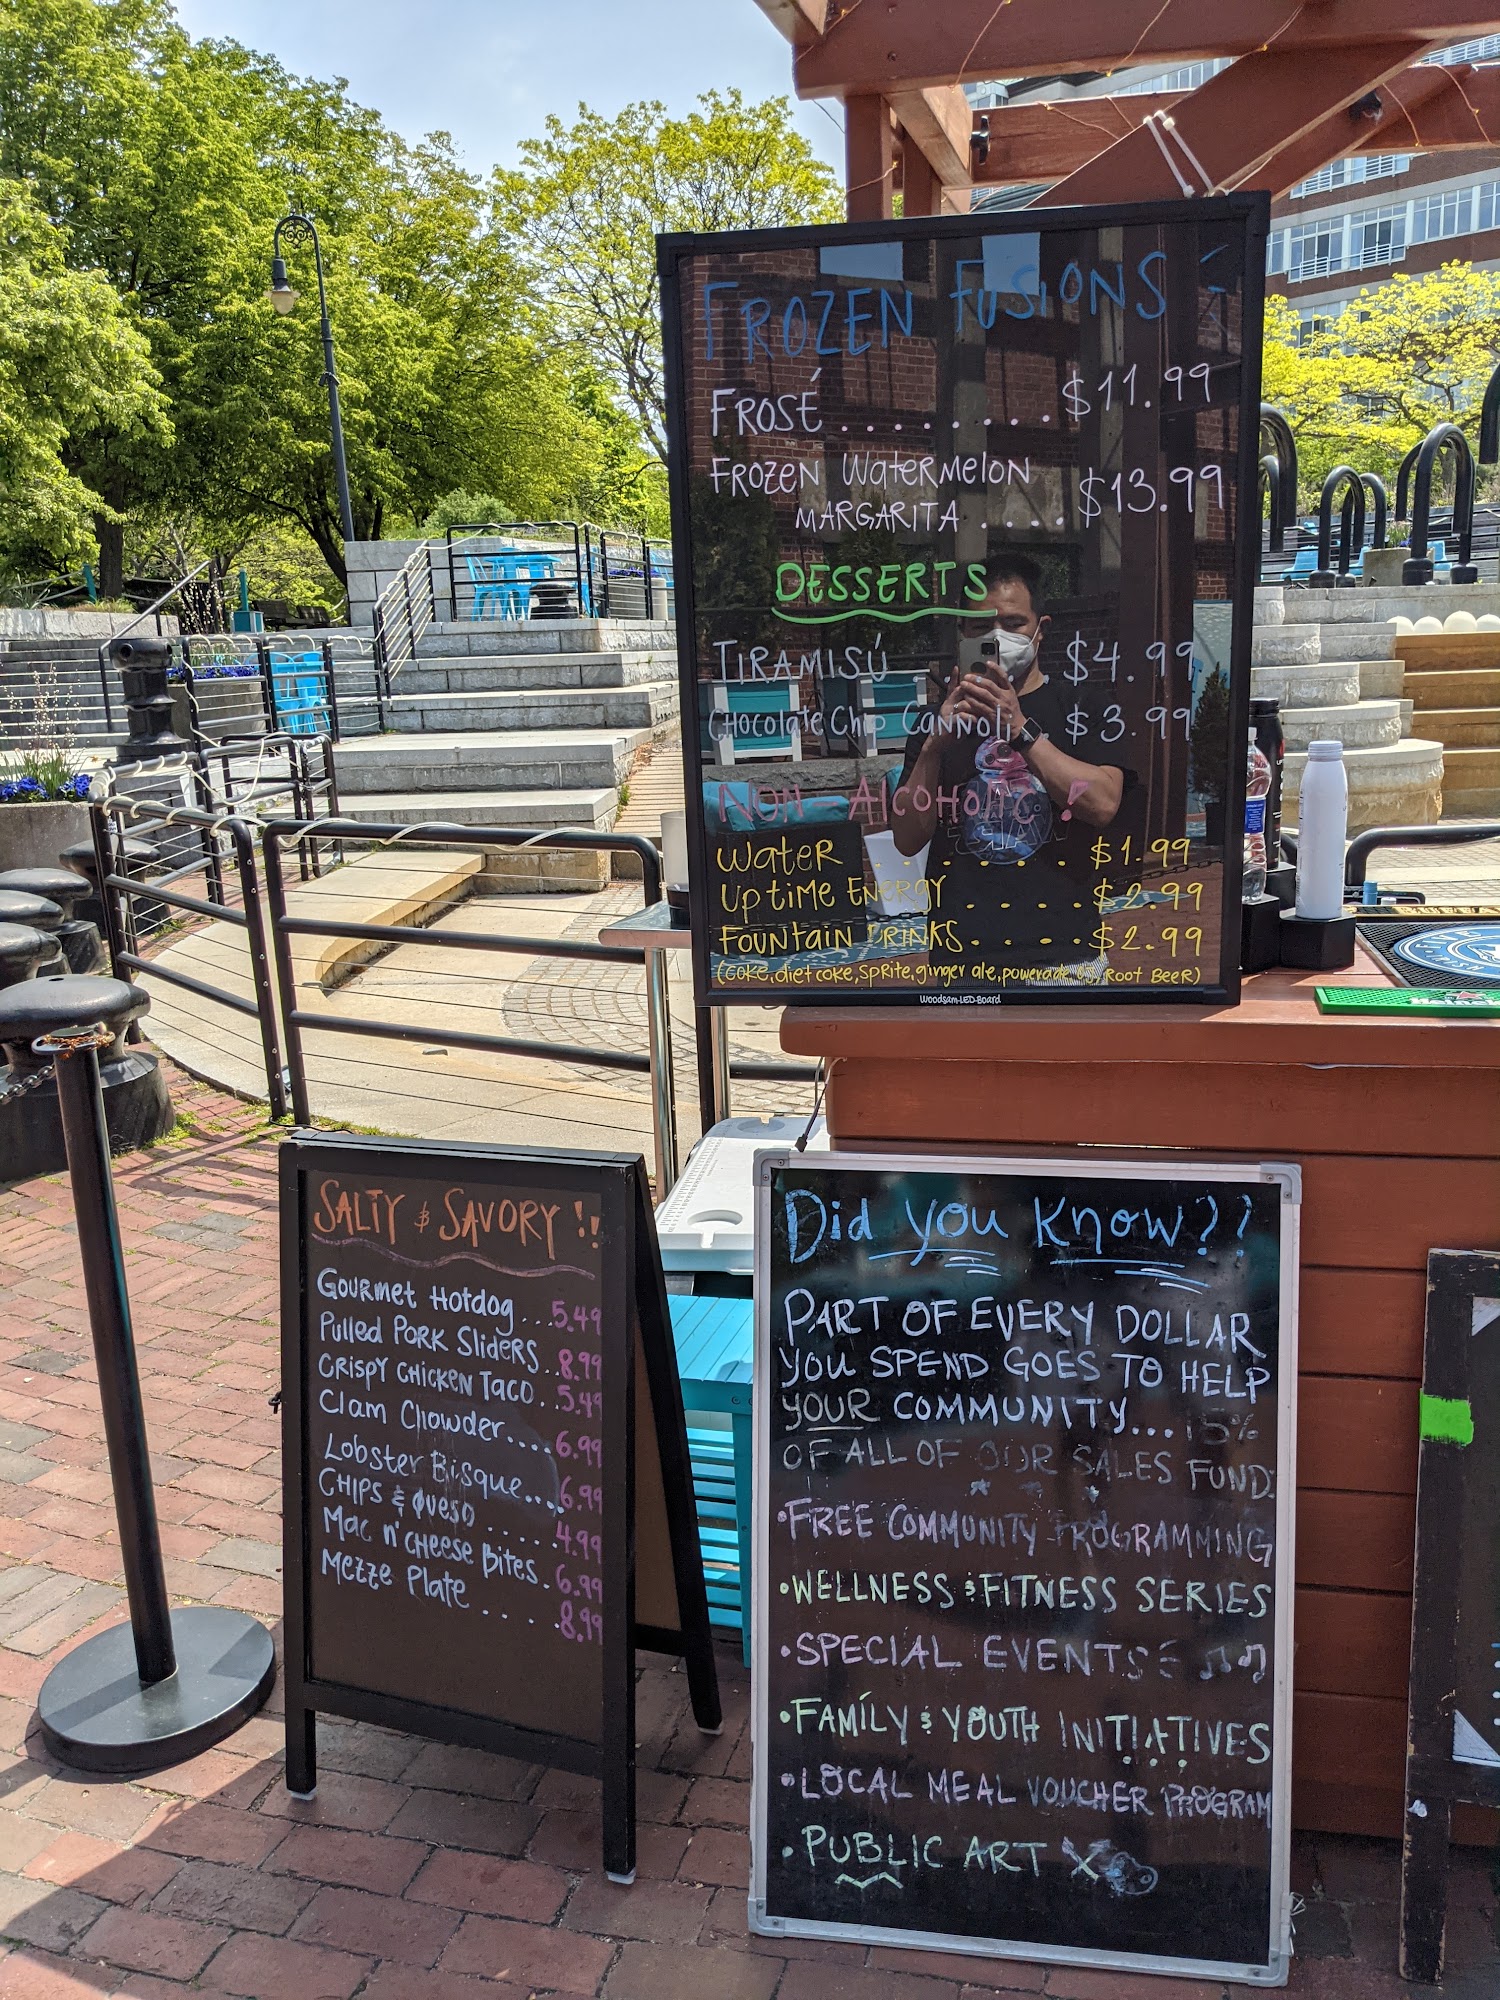 FROZEN FUSIONS
FROSÉ ......... $11.99
FROZEN WATERMELON
MARGARITA .... $13.99
DESSERTS
TIRAMISÚ ..... $4.99
CHOCOLATE CHIP CANNOLI .. $3.99
NON-ALCOHOLIC!
WATER ....... $1.99
Uptime ENERGY ..... $2.99
FOUNTAIN DRINKS..... $2.99
(COKE, diet coke, sprite, ginger ale, powerade, ROOT BEER)
Woodsam-LED-Board
SALTY & SAVORY!!
Gourmet Hotdog...5.49
Pulled PORK SlideRS..8.99
CRISPY CHICKEN TACO..5.49
Clam Chowder....6.99
Lobster Bisque....6.99
CHIPS & QUESO .....4.99
Mac n' CHEESE Bites.6.99
Mezze Plate .....8.99
Did you know??
PART OF EVERY DOLLAR
YOU SPEND GOES TO HELP
YOUR COMMUNITY... 15%
OF ALL OF OUR SALES FUND:
•FREE COMMUNITY PROGRAMMING
•WELLNESS & FITNESS SERIES
•SPECIAL EVENTS
•FAMILY & YOUTH INITIATIVES
•LOCAL MEAL VOUCHER PROGRAM
•PUBLIC ART
Heineken